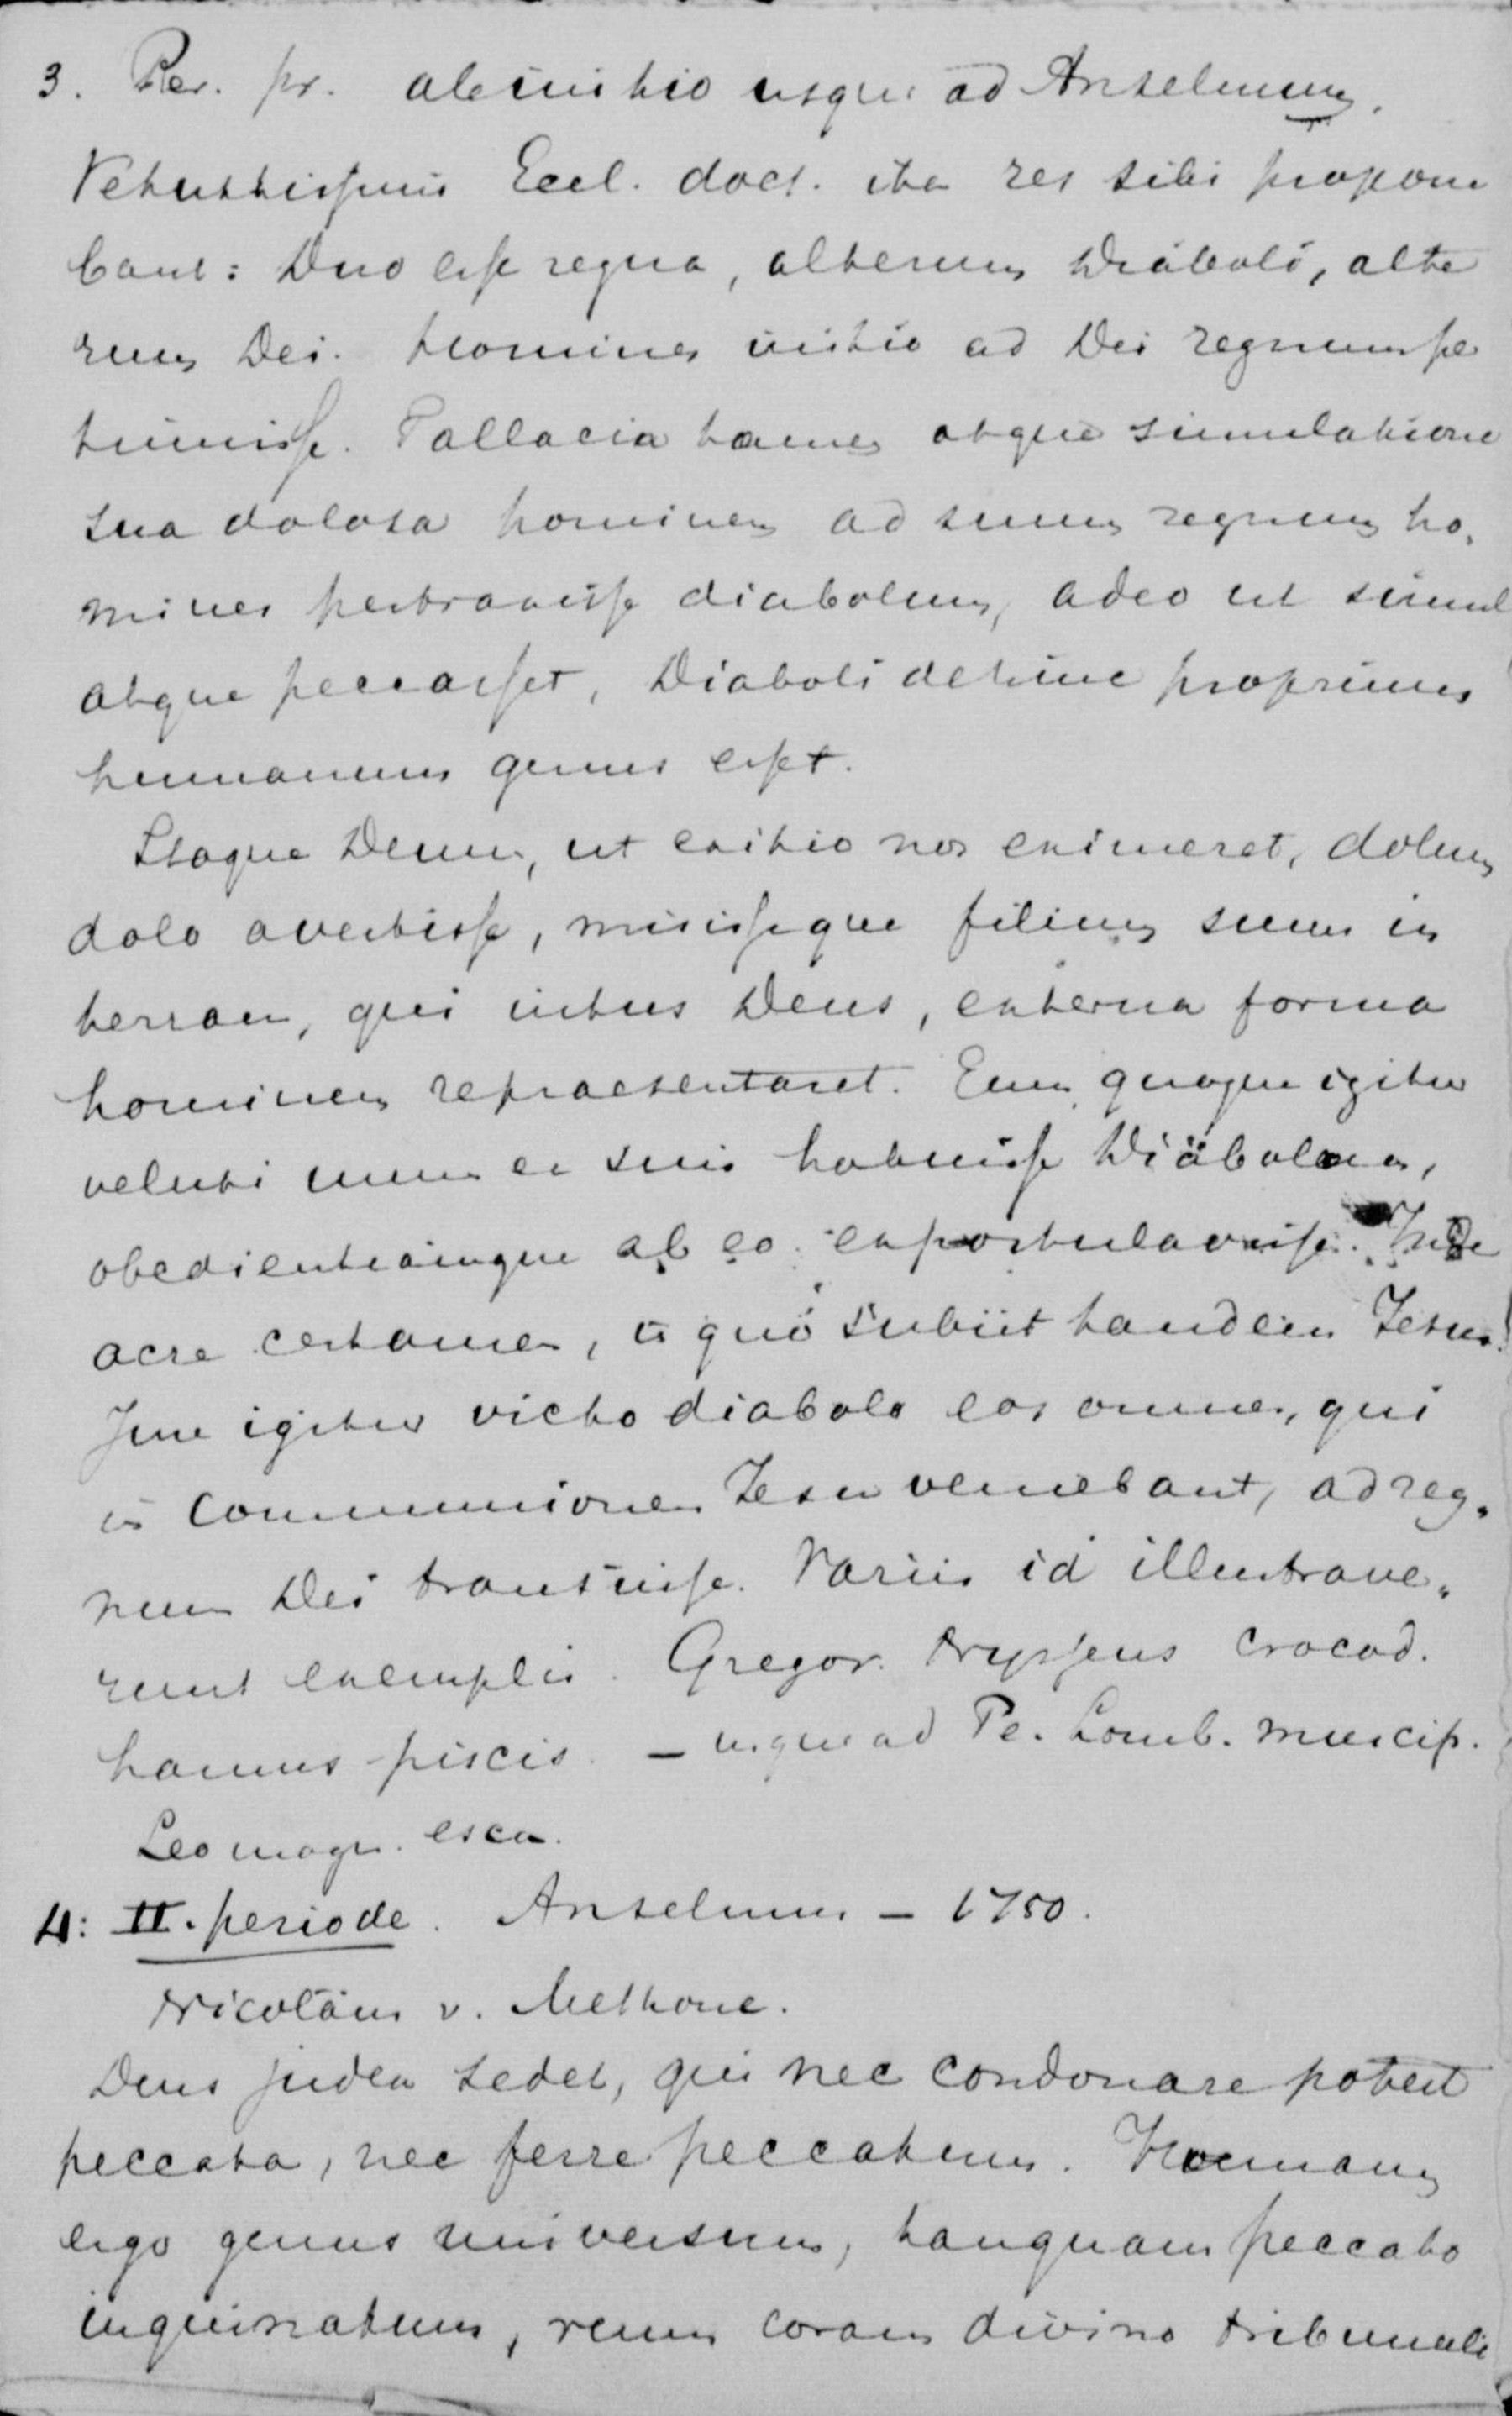 3. Per. pr. ab initio usque ad Anselmum.
Vetustissimis Eccl. doct. ita res sibi propone
bant: Duo esse regna, alterum Diaboli, alte
rum Dei. Homines initio ad Dei regnum per
tinuisse. Fallacia tamen atque simulatione
sua dolosa hominem ad suum regnum ho,
mines pertraxisse diabolum, adeo ut simul
atque peccasset, Diaboli dehinc proprium
humanum genus esset.
Itaque Deum, ut exitio nos eximeret, dolum
dolo avertisse, misisseque filium suum in
terram, qui intus Deus, externa forma
hominem repraesentaret. Eum quoque igitur
veluti unum ex suis habuisse Diabolum,
obedientiamque ab eo expostulavisse. Inde
acre certamen, in quo subiit tandem Jesus.
Jure igitur victo diabolo eos omnes, qui
in communionem Jesu veniebant, ad reg,
num Dei transiisse. Variis id illustrave,
runt exemplis. Gregor. Nyssenus crocod.
hamus piscis. – usque ad Pe. Lomb. muscip.
Leo magn. esca.
4: II. periode. Anselmus – 1750.
Nicolaus v. Methone.
Deus judex sedet, qui nec condonare potest
peccata, nec ferre peccatum. Humanum
ergo genus universum, tanquam peccato
inquinatum, reum coram divino tribunali